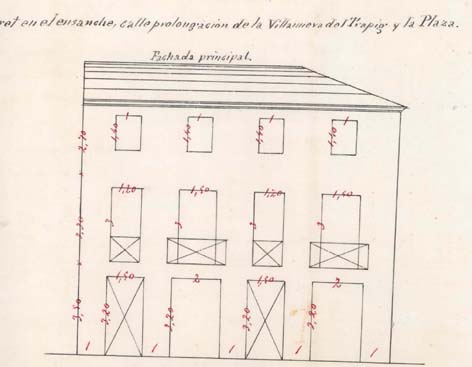 ret en el ensanche, calle prolongación de la Villanueva del Trapig y la Plaza.
Fachada principal.
1 1 1 1
2,70 1,40 1,40 1,40 1,40
1,20 1,50 1,20 1,50
3,30 3 3 3 3
1,50 2 1,50 2
3,50 3,20 3,20 3,20 3,20
1 1 1 1 1